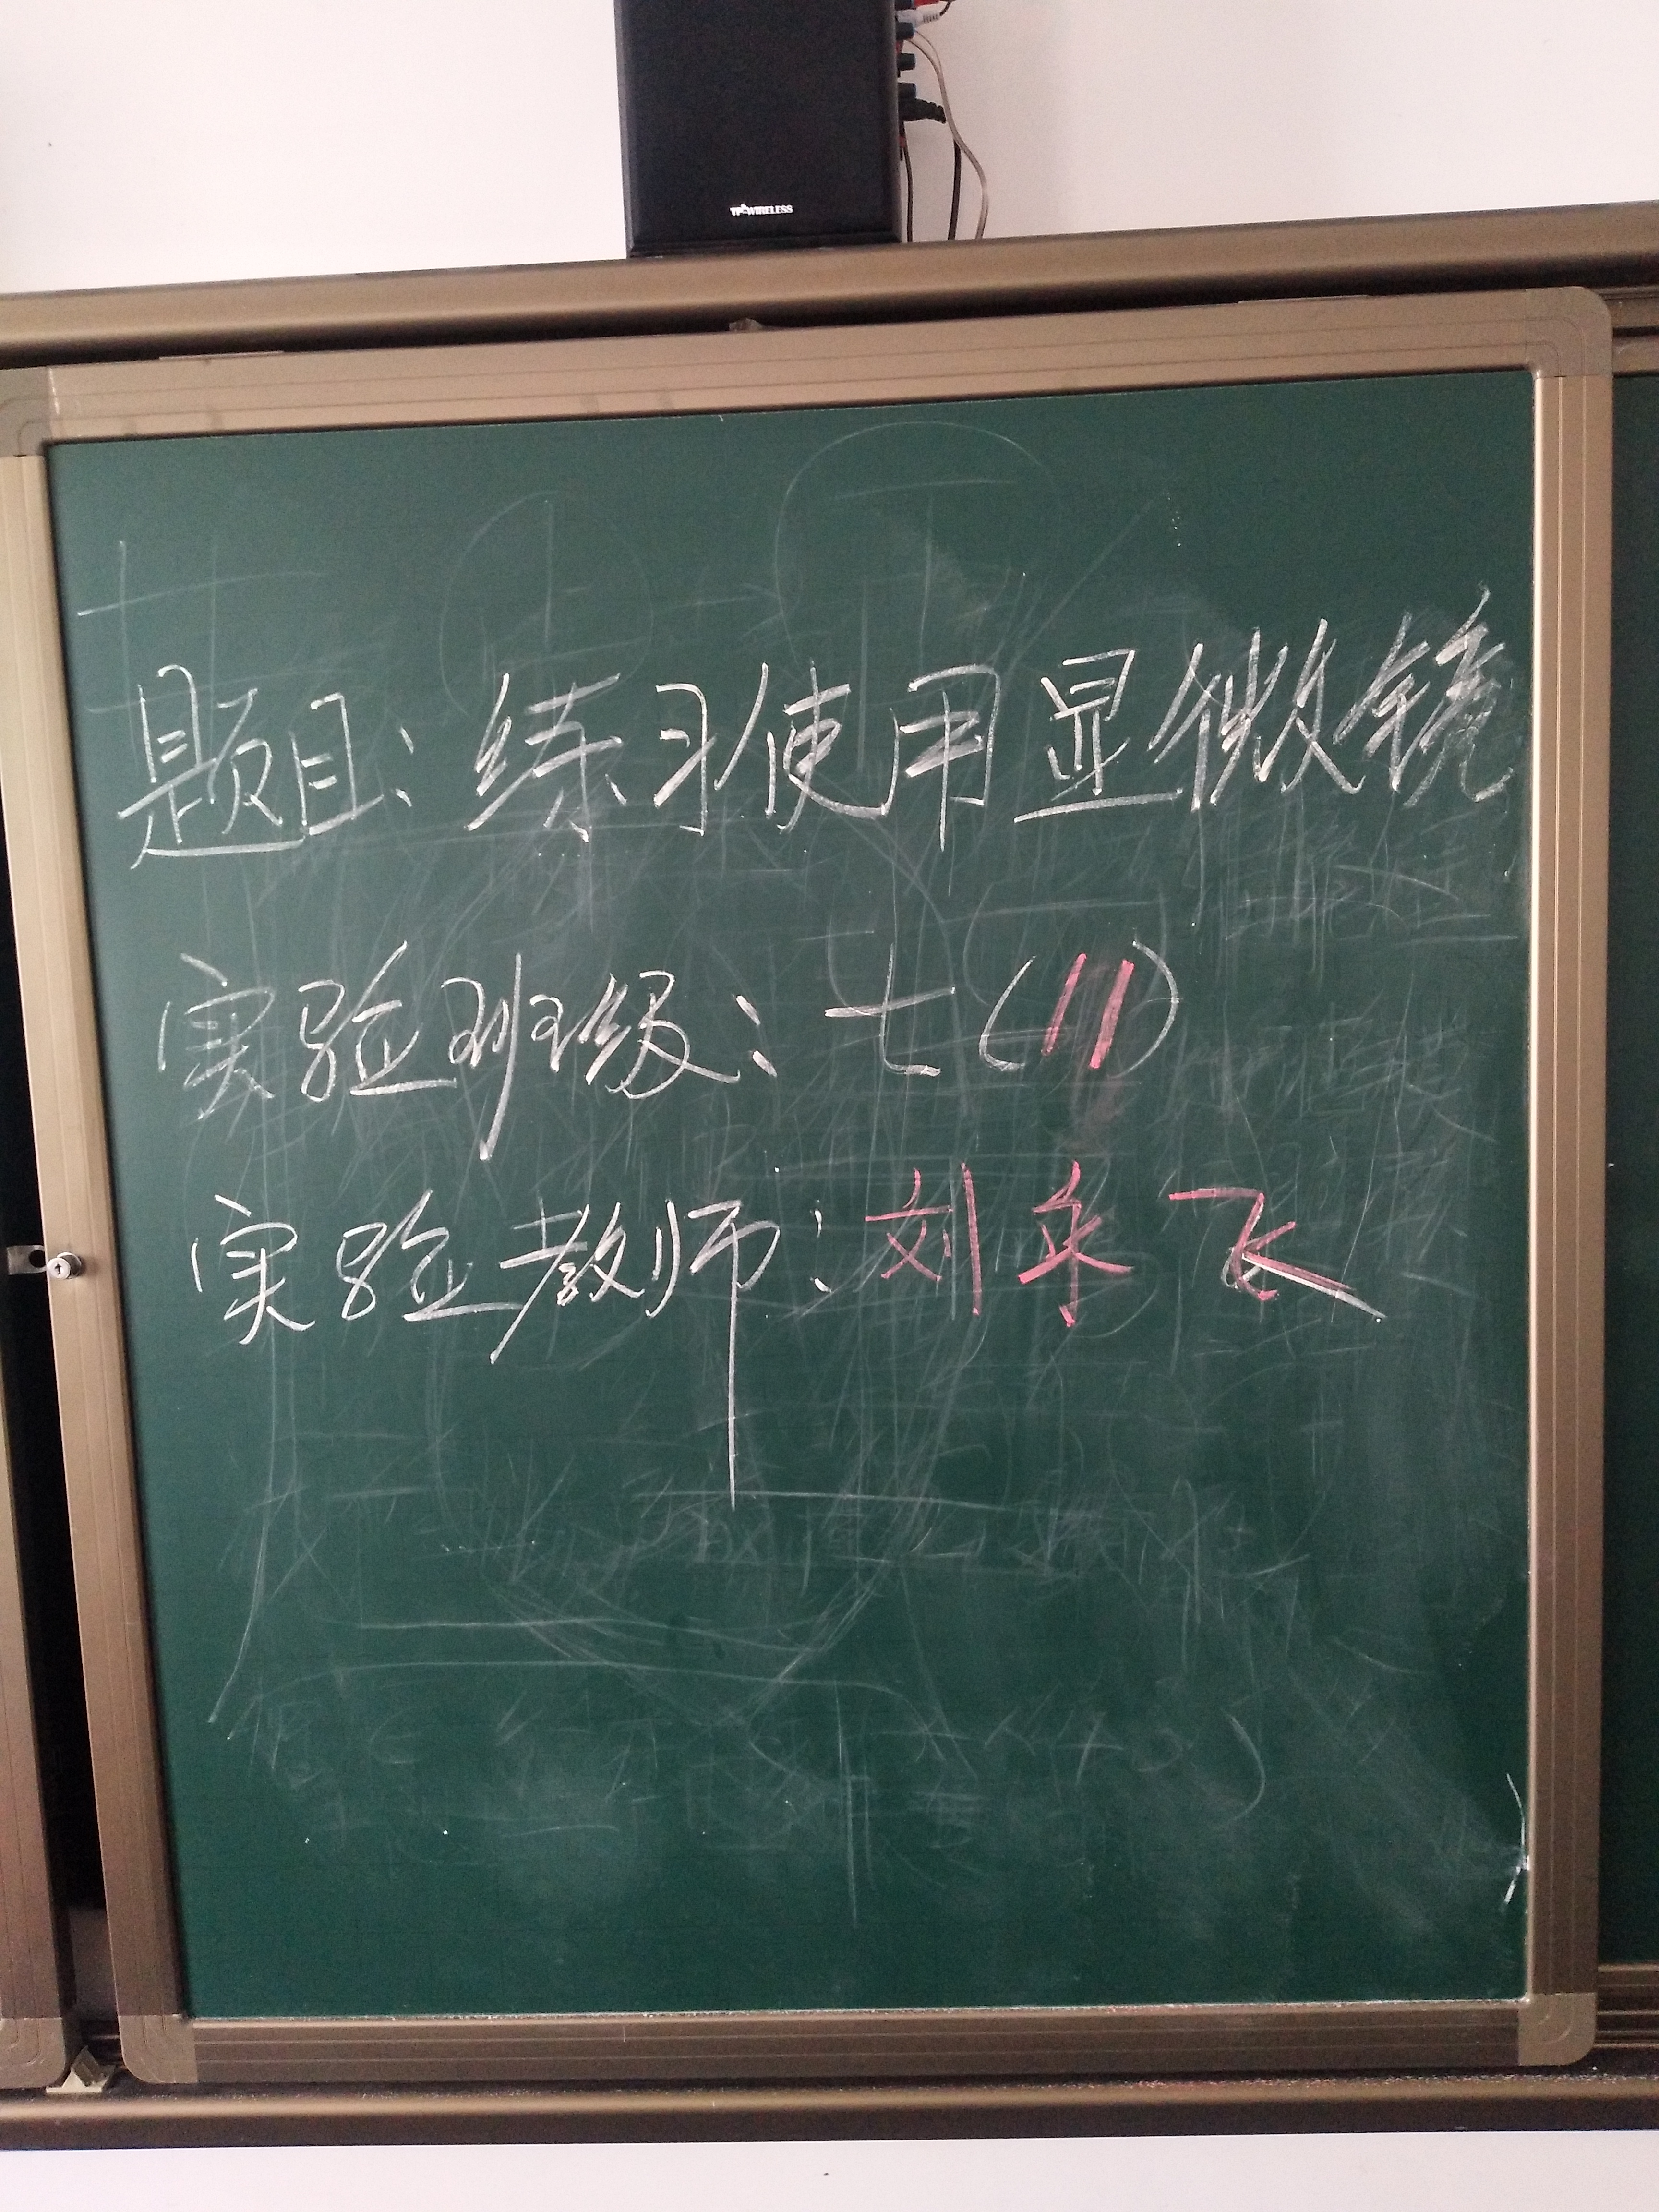 TP-WIRELESS
题目：练习使用显微镜
实验班级：七（11）
实验教师：刘永飞